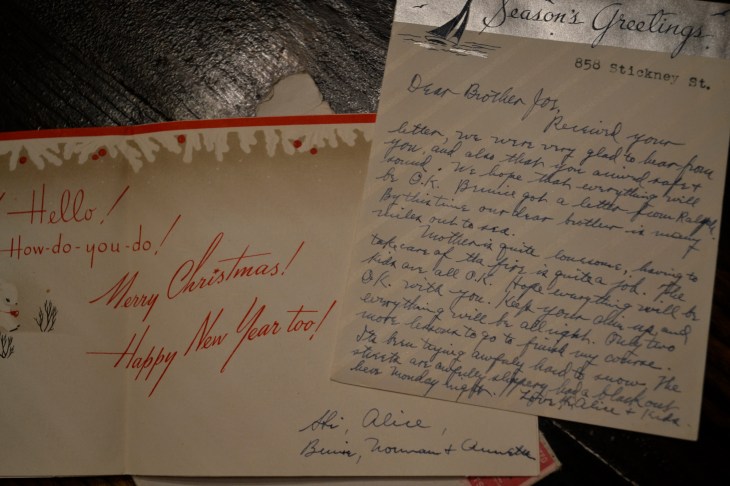 Hello!
How-do-you-do!
Merry Christmas!
Happy New Year too!
Alice,
Norman +
Season's Greetings
858 Stickney St.
Dear Brother Joe,
Received your
letter, we were very glad to hear from
you, and also that you arrived safe +
sound. We hope that everything will
be O.K. Bernie got a letter from Ralph.
By this time our dear brother is many
miles out to sea.
Mother is quite lonesome, having to
take care of the fire is quite a job. The
kids are all O.K. Hope everything will be
O.K. with you. Keep your chin up and
everything will be all right. Only two
more lessons to go to finish my course.
Its been trying awfuly hard to snow. The
streets are awfully slippery had a blackout
here Monday night. Love Alice + Kids.